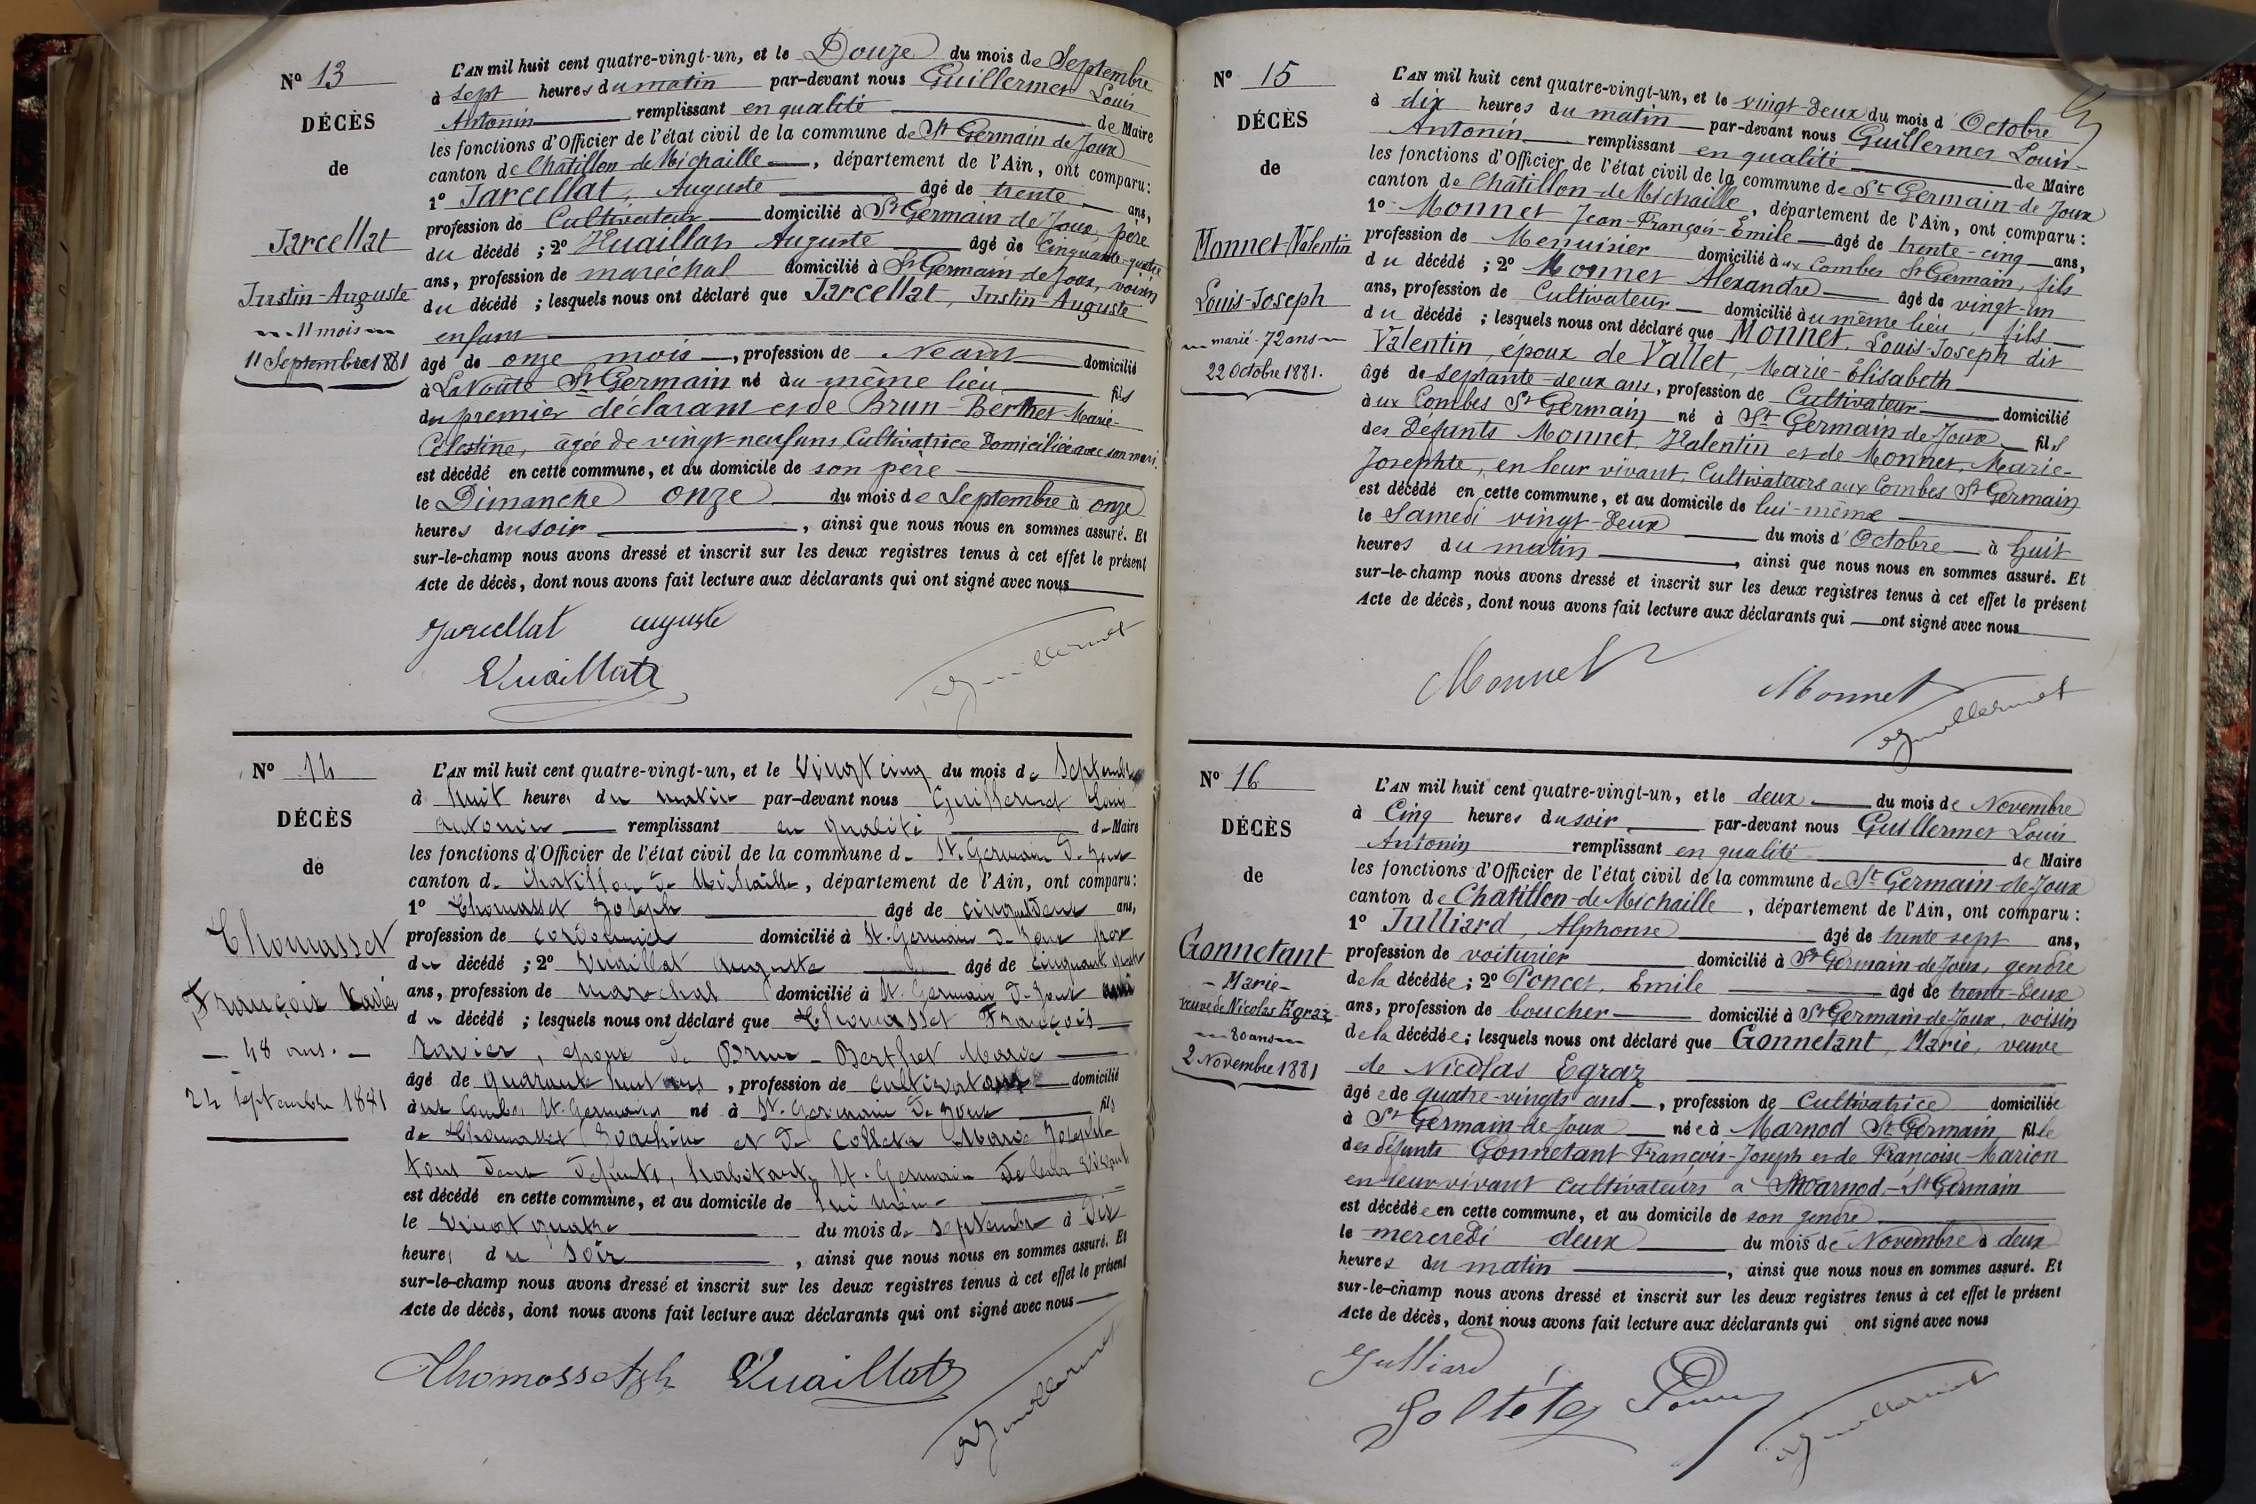 N° 13
DÉCÈS
de
Jarcellat
Justin-Auguste
11 mois
11 Septembre 1881
L'AN mil huit cent quatre-vingt-un, et le Douze du mois de Septembre
à sept heures du matin par-devant nous Guillermet Louis
Antonin remplissant en qualité de Maire
les fonctions d'Officier de l'état civil de la commune de St Germain de Joux
canton de Châtillon de Michaille, département de l'Ain, ont comparu:
1° Jarcellat, Auguste âgé de trente ans,
profession de Cultivateur domicilié à St Germain de Joux, père
du décédé ; 2° Vuaillat Auguste âgé de Cinquante-quatre
ans, profession de maréchal domicilié à St Germain de Joux, voisin
du décédé ; lesquels nous ont déclaré que Jarcellat, Justin Auguste
enfant
âgé de onze mois, profession de Néant domicilié
à La Voûte St Germain né au même lieu fils
du premier déclarant et de Brun-Berthet-Marie-
Célestine, âgée de vingt-neuf ans, Cultivatrice Domiciliée avec son mari.
est décédé en cette commune, et au domicile de son père
le Dimanche onze du mois de Septembre à onze
heures du soir, ainsi que nous nous en sommes assuré. Et
sur-le-champ nous avons dressé et inscrit sur les deux registres tenus à cet effet le présent
Acte de décès, dont nous avons fait lecture aux déclarants qui ont signé avec nous
Jarcellat auguste
Vuaillat
Guillermet
N° 14
DÉCÈS
de
Thomasset
François Xavier
48 ans.
24 septembre 1881
L'AN mil huit cent quatre-vingt-un, et le Vingt cinq du mois de Septembre
à huit heures du matin par-devant nous Guillermet Louis
Antonin remplissant en qualité de Maire
les fonctions d'Officier de l'état civil de la commune de St. Germain de Joux
canton de Châtillon de Michaille, département de l'Ain, ont comparu:
1° Thomasset Joseph âgé de ans,
profession de cordonnier domicilié à St. Germain de Joux
du décédé ; 2° Vuaillat Auguste âgé de cinquante quatre
ans, profession de maréchal domicilié à St. Germain de Joux ami
du décédé ; lesquels nous ont déclaré que Thomasset François
Xavier, époux de Brun-Berthet Marie
âgé de quarante huit ans, profession de cultivateur domicilié
aux Combes St. Germain né à St. Germain de Joux fils
de Thomasset Joachim et de Collet Marie Josephte
tous deux défunts, habitant St. Germain de leur vivant
est décédé en cette commune, et au domicile de lui même
le Vingt quatre du mois de septembre à Dix
heures du soir, ainsi que nous nous en sommes assuré. Et
sur-le-champ nous avons dressé et inscrit sur les deux registres tenus à cet effet le présent
Acte de décès, dont nous avons fait lecture aux déclarants qui ont signé avec nous
Thomasset Jh Vuaillat
Guillermet
N° 15
DÉCÈS
de
Monnet-Valentin
Louis-Joseph
marié-72 ans
22 Octobre 1881.
L'AN mil huit cent quatre-vingt-un, et le vingt-deux du mois d'Octobre
à dix heures du matin par-devant nous Guillermet Louis-
Antonin remplissant en qualité de Maire
les fonctions d'Officier de l'état civil de la commune de St Germain-de Joux
canton de Châtillon-de Michaille, département de l'Ain, ont comparu :
1° Monnet Jean-François-Emile âgé de trente-cinq ans,
profession de Menuisier domicilié aux Combes St Germain, fils
du décédé ; 2° Monnet Alexandre âgé de vingt-un
ans, profession de Cultivateur domicilié au même lieu, fils
du décédé ; lesquels nous ont déclaré que Monnet, Louis-Joseph dit
Valentin, époux de Vallet, Marie-Elisabeth
âgé de septante-deux ans, profession de Cultivateur domicilié
aux Combes St Germain né à St Germain de Joux fils
des Défunts Monnet, Valentin et de Monnet, Marie-
Josephte, en leur vivant, Cultivateurs aux Combes St Germain
est décédé en cette commune, et au domicile de lui-même
le Samedi vingt-deux du mois d'Octobre à huit
heures du matin, ainsi que nous nous en sommes assuré. Et
sur-le-champ nous avons dressé et inscrit sur les deux registres tenus à cet effet le présent
Acte de décès, dont nous avons fait lecture aux déclarants qui ont signé avec nous
Monnet Monnet
Guillermet
N° 16
DÉCÈS
de
Gonnetant
Marie
veuve de Nicolas Egraz
80 ans
2 Novembre 1881
L'AN mil huit cent quatre-vingt-un, et le deux du mois de Novembre
à Cinq heures du soir par-devant nous Guillermet Louis
Antonin remplissant en qualité de Maire
les fonctions d'Officier de l'état civil de la commune de St Germain-de-Joux
canton de Châtillon-de-Michaille, département de l'Ain, ont comparu :
1° Julliard, Alphonse âgé de trente sept ans,
profession de voiturier domicilié à St Germain-de Joux, gendre
de la décédée ; 2° Poncet, Emile âgé de trente-deux
ans, profession de boucher domicilié à St Germain-de-Joux, voisin
de la décédée ; lesquels nous ont déclaré que Gonnetant, Marie, veuve
de Nicolas Egraz
âgée de quatre-vingts ans, profession de Cultivatrice domiciliée
à St Germain-de Joux née à Marnod St Germain fille
des défunts Gonnetant François-Joseph et de Françoise-Marion
en leur vivant cultivateurs à Marnod-St Germain
est décédée en cette commune, et au domicile de son gendre
le mercredi deux du mois de Novembre à deux
heures du matin, ainsi que nous nous en sommes assuré. Et
sur-le-champ nous avons dressé et inscrit sur les deux registres tenus à cet effet le présent
Acte de décès, dont nous avons fait lecture aux déclarants qui ont signé avec nous
Julliard
Guillermet